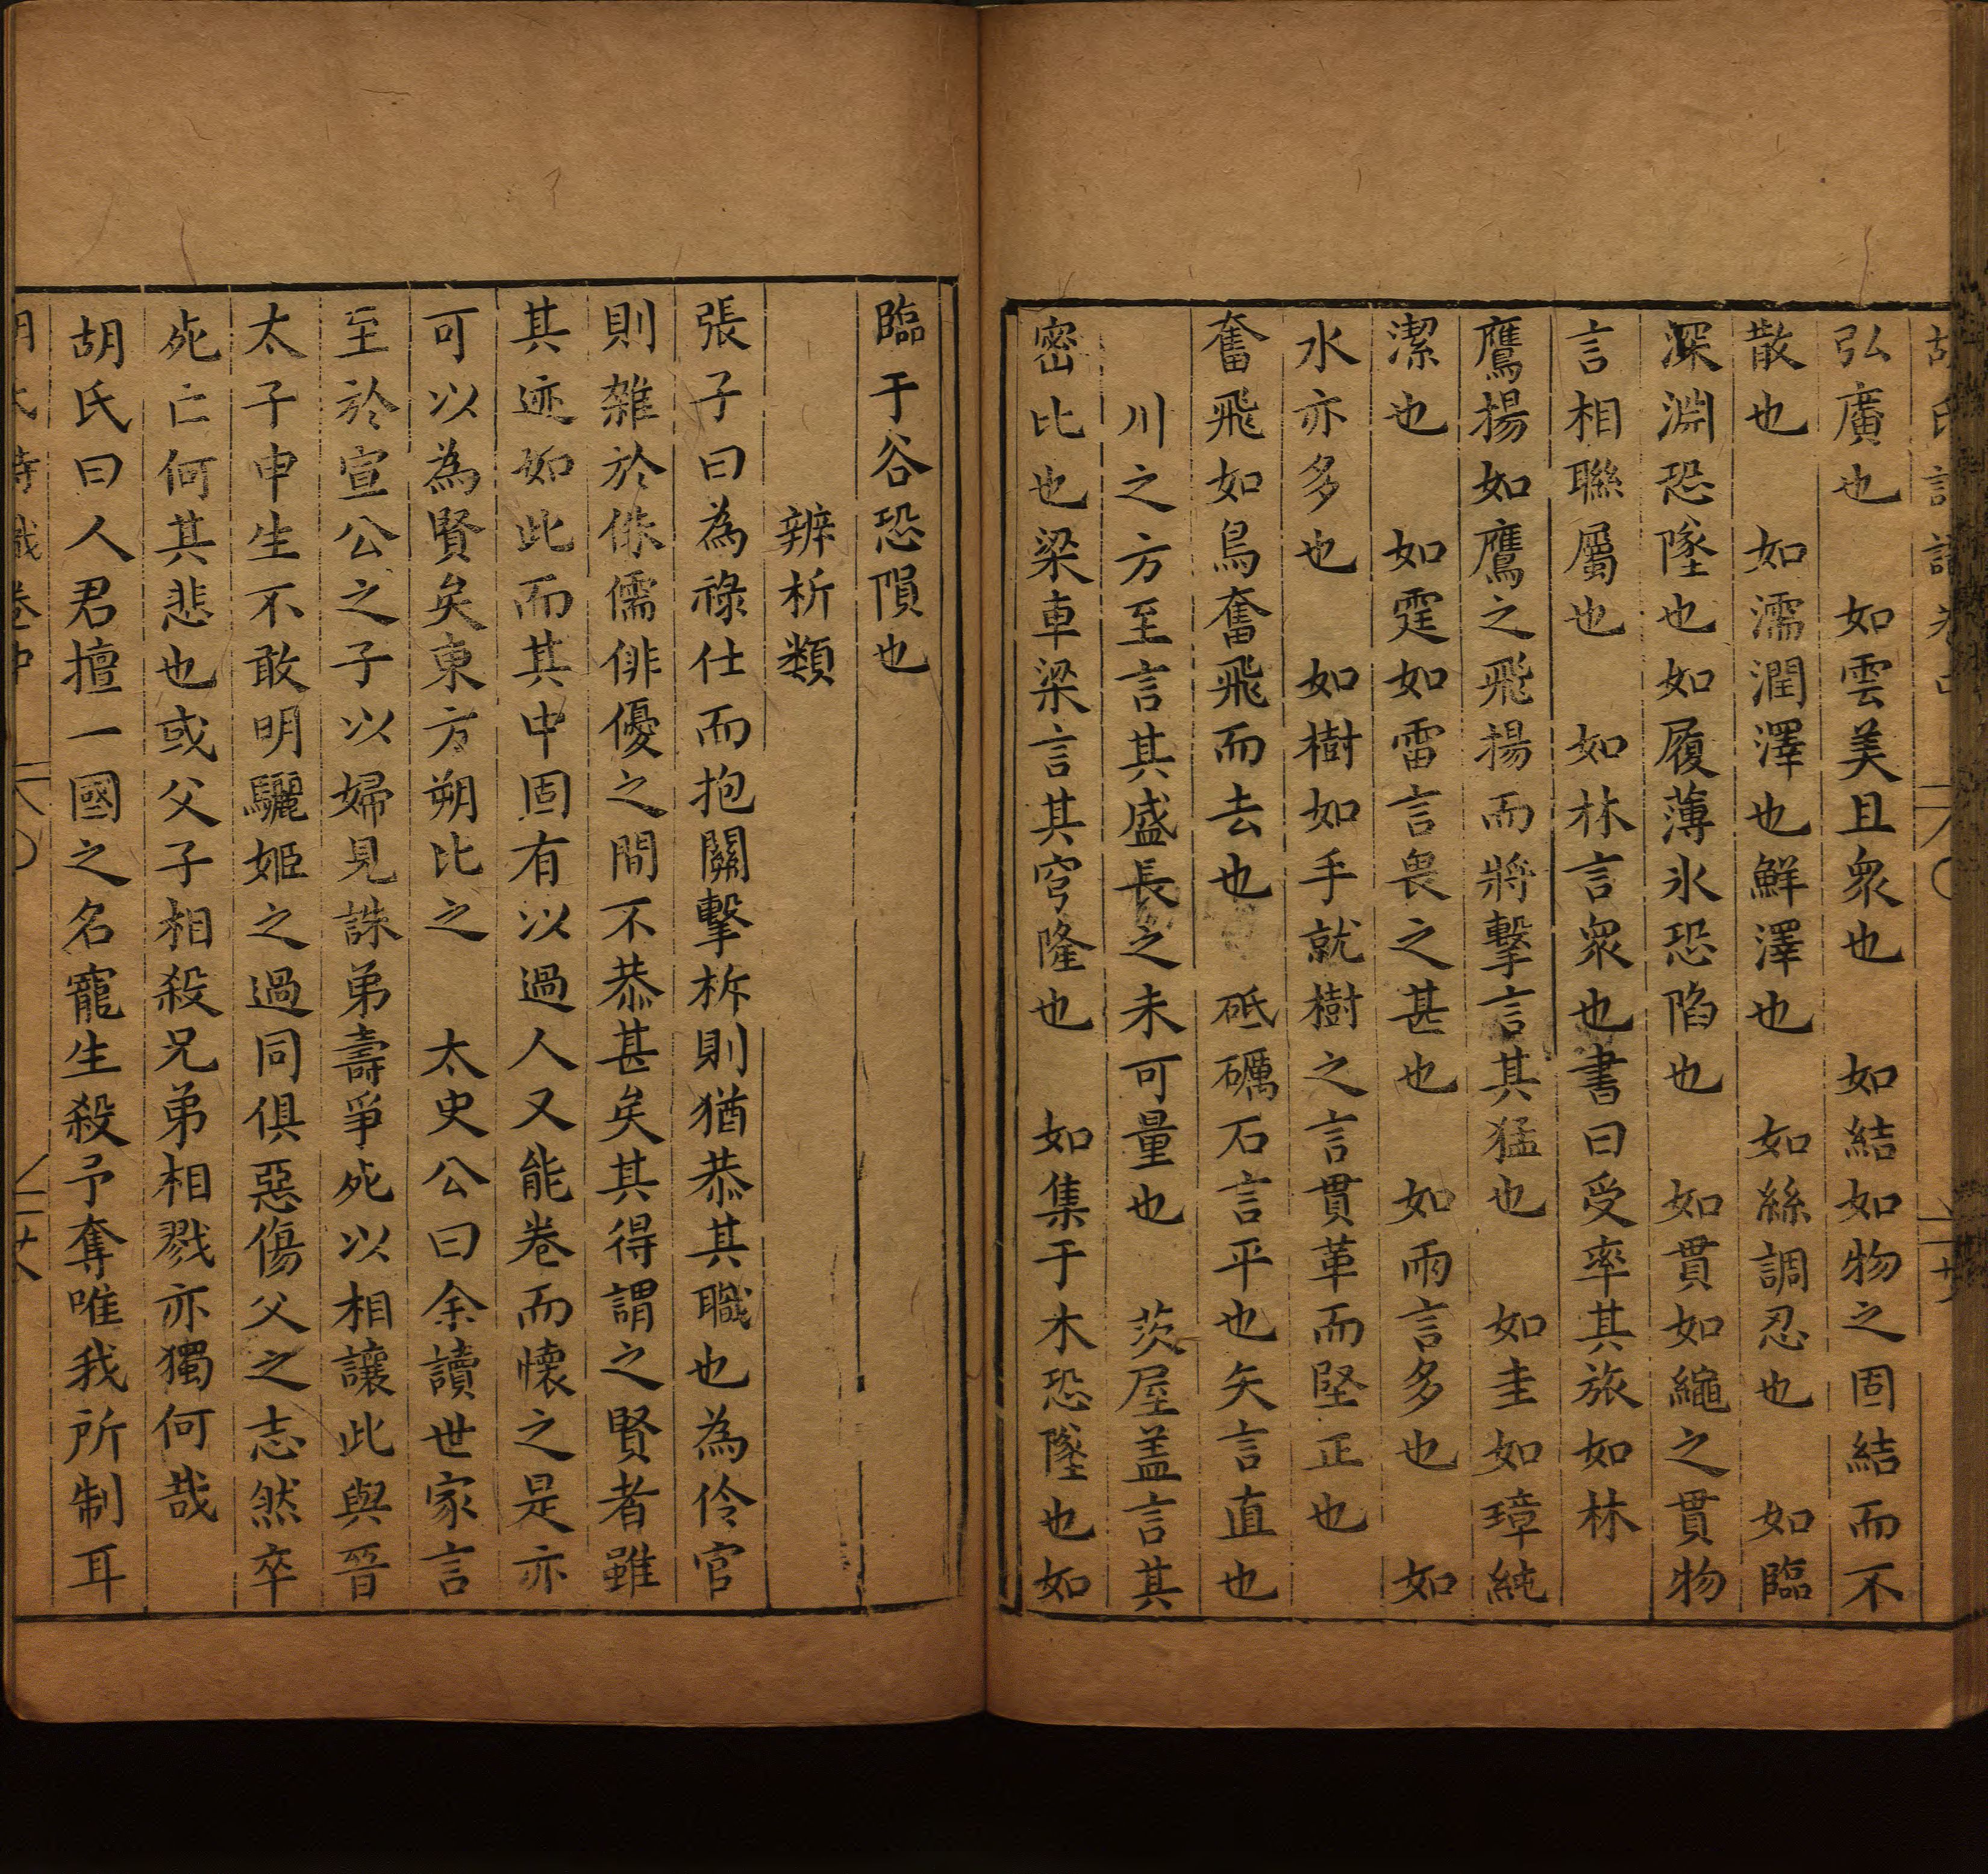 弘廣也　如雲美且衆也　如結如物之固結而不
散也　如濡潤澤也鮮澤也　如絲調忍也　如臨
深淵恐墜也如履薄氷恐陷也　如貫如繩之貫物
言相聯屬也　如林言衆也書曰受率其旅如林
鷹揚如鷹之飛揚而將擊言其猛也　如圭如璋純
潔也　如霆如雷言畏之甚也　如雨言多也　如
水亦多也　如樹如手就樹之言貫革而堅正也
奮飛如鳥奮飛而去也　砥礪石言平也矢言直也
川之方至言其盛長之未可量也　茨屋盖言其
密比也梁車梁言其穹隆也　如集于木恐墜也如
臨于谷恐隕也
辨析類
張子曰為祿仕而抱關擊柝則猶恭其職也為伶官
則雜於侏儒俳優之間不恭甚矣其得謂之賢者雖
其迹如此而其中固有以過人又能卷而懷之是亦
可以為賢矣東方朔比之　太史公曰余讀世家言
至於宣公之子以婦見誅弟壽爭死以相讓此與晉
太子申生不敢明驪姬之過同俱惡傷父之志然卒
死亡何其悲也或父子相殺兄弟相戮亦獨何哉
胡氏曰人君擅一國之名寵生殺予奪唯我所制耳